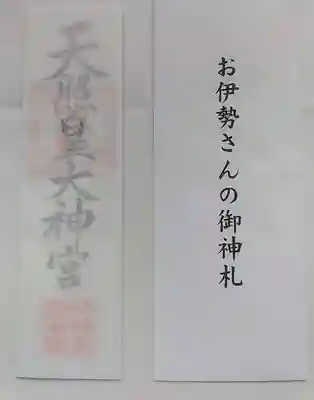 お伊勢さんの御神札
天照皇大神宮